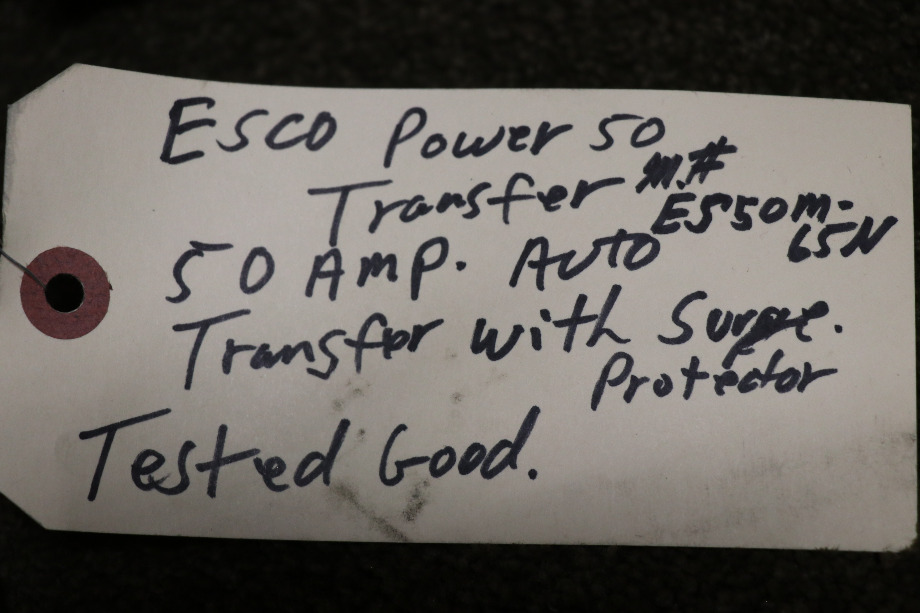 ESCO Power 50
Transfer M.#
ES50M-
65N
50 Amp. Auto
Transfer with Surge.
Protector
Tested Good.